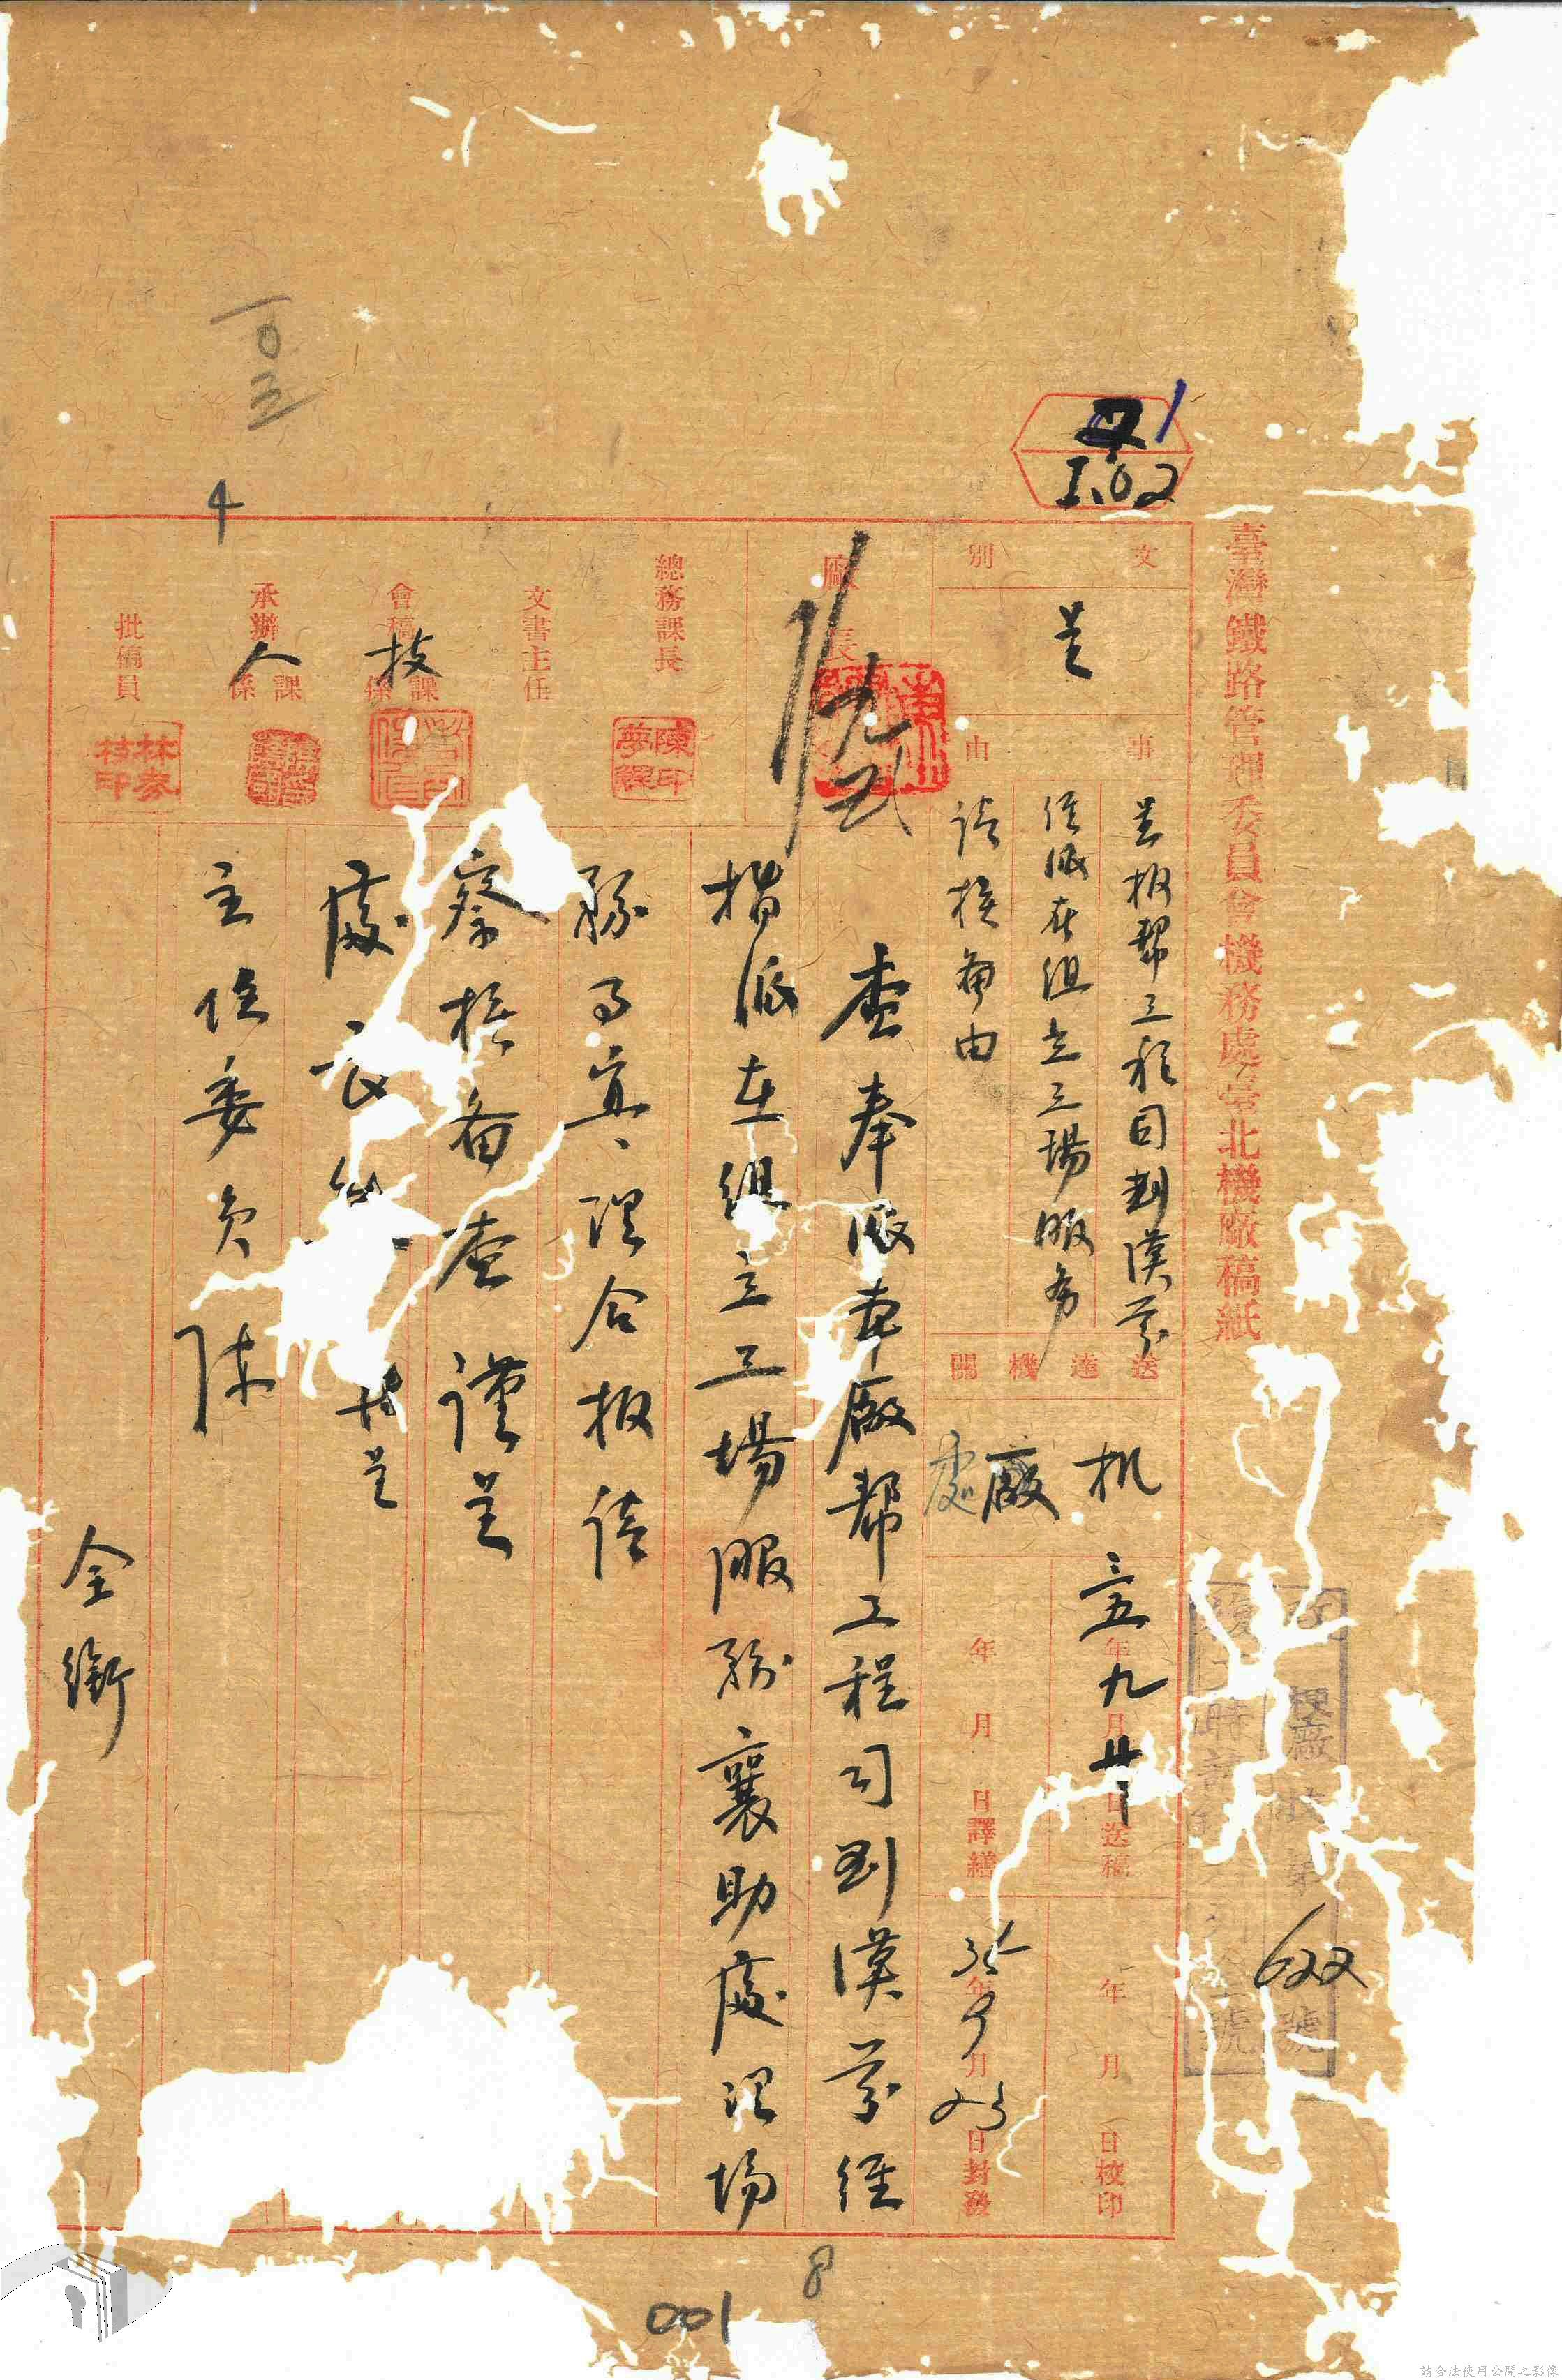 臺灣鐵路管理委員會機務處臺北機廠稿紙
文別
呈
事由
呈報幫工程司劉漢容
經派在組立工場服务
請核备由
送達機關
机廠
處
三五年九月廿日送稿
年月日譯繕
年月日校印
35年9月23日封發
機廠
號
622
時
號
廠長
總務課長
文書主任
會稿 技 課係
承辦 人 課係
批稿員
陳印
林
印
查奉派本廠幫工程司劉漢容經
指派在組立工場服務襄助處理場
務事宜理合报請
察核备查謹呈
處長
呈
主任委員陳
全銜
1.02
一〇三
4
8
001
請合法使用公開之影像